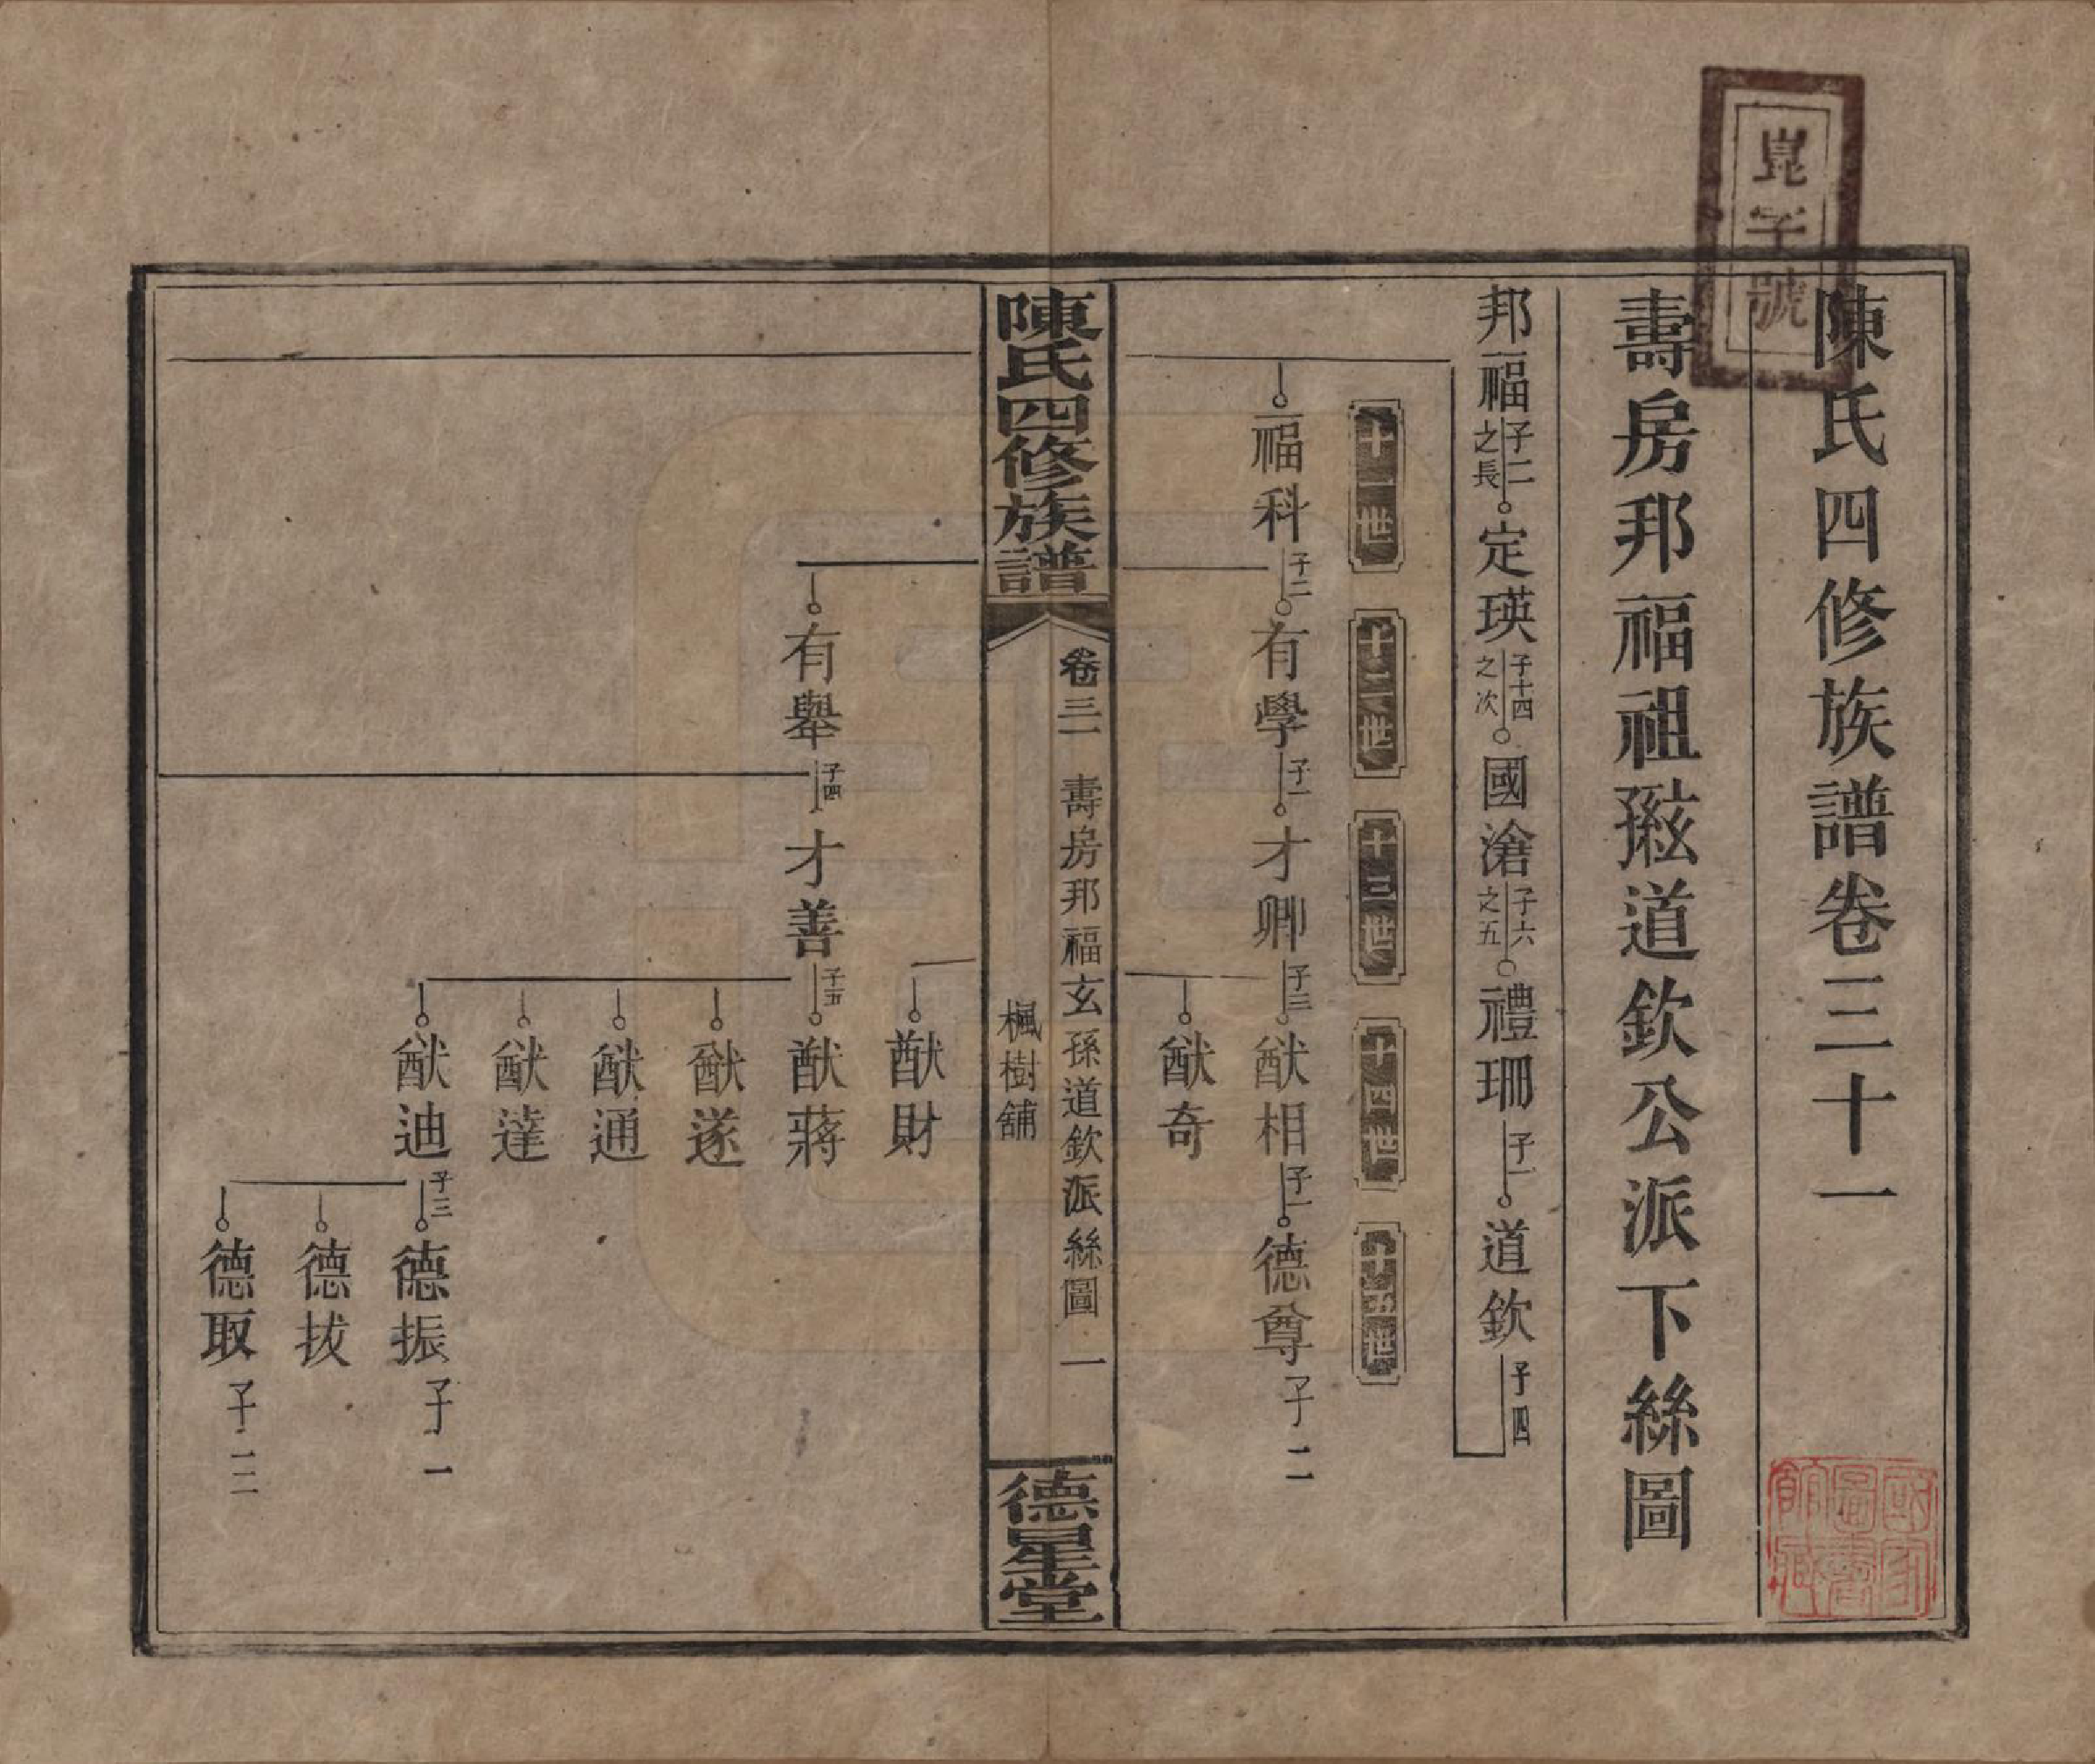 崑字號
陳氏四修族譜卷三十一
壽房邦福祖𤣥孫道欽公派下絲圖
邦福 子二之長 定瑛 子十四之次 國滄 子六之五 禮珊 子一 道欽 子四
十一世 十二世 十三世 十四世 十五世
福科 子二 有學 子一 才卿 子三 猷相 子一 德尊 子二
猷奇
陳氏四修族譜
卷三一 壽房邦福玄孫道欽派絲圖 一
楓樹舖
德星堂
猷財
有舉 子四 才善 子五 猷蔣
猷遂
猷通
猷達
猷迪 子三 德振 子一
德拔
德取 子三
國家圖書館藏